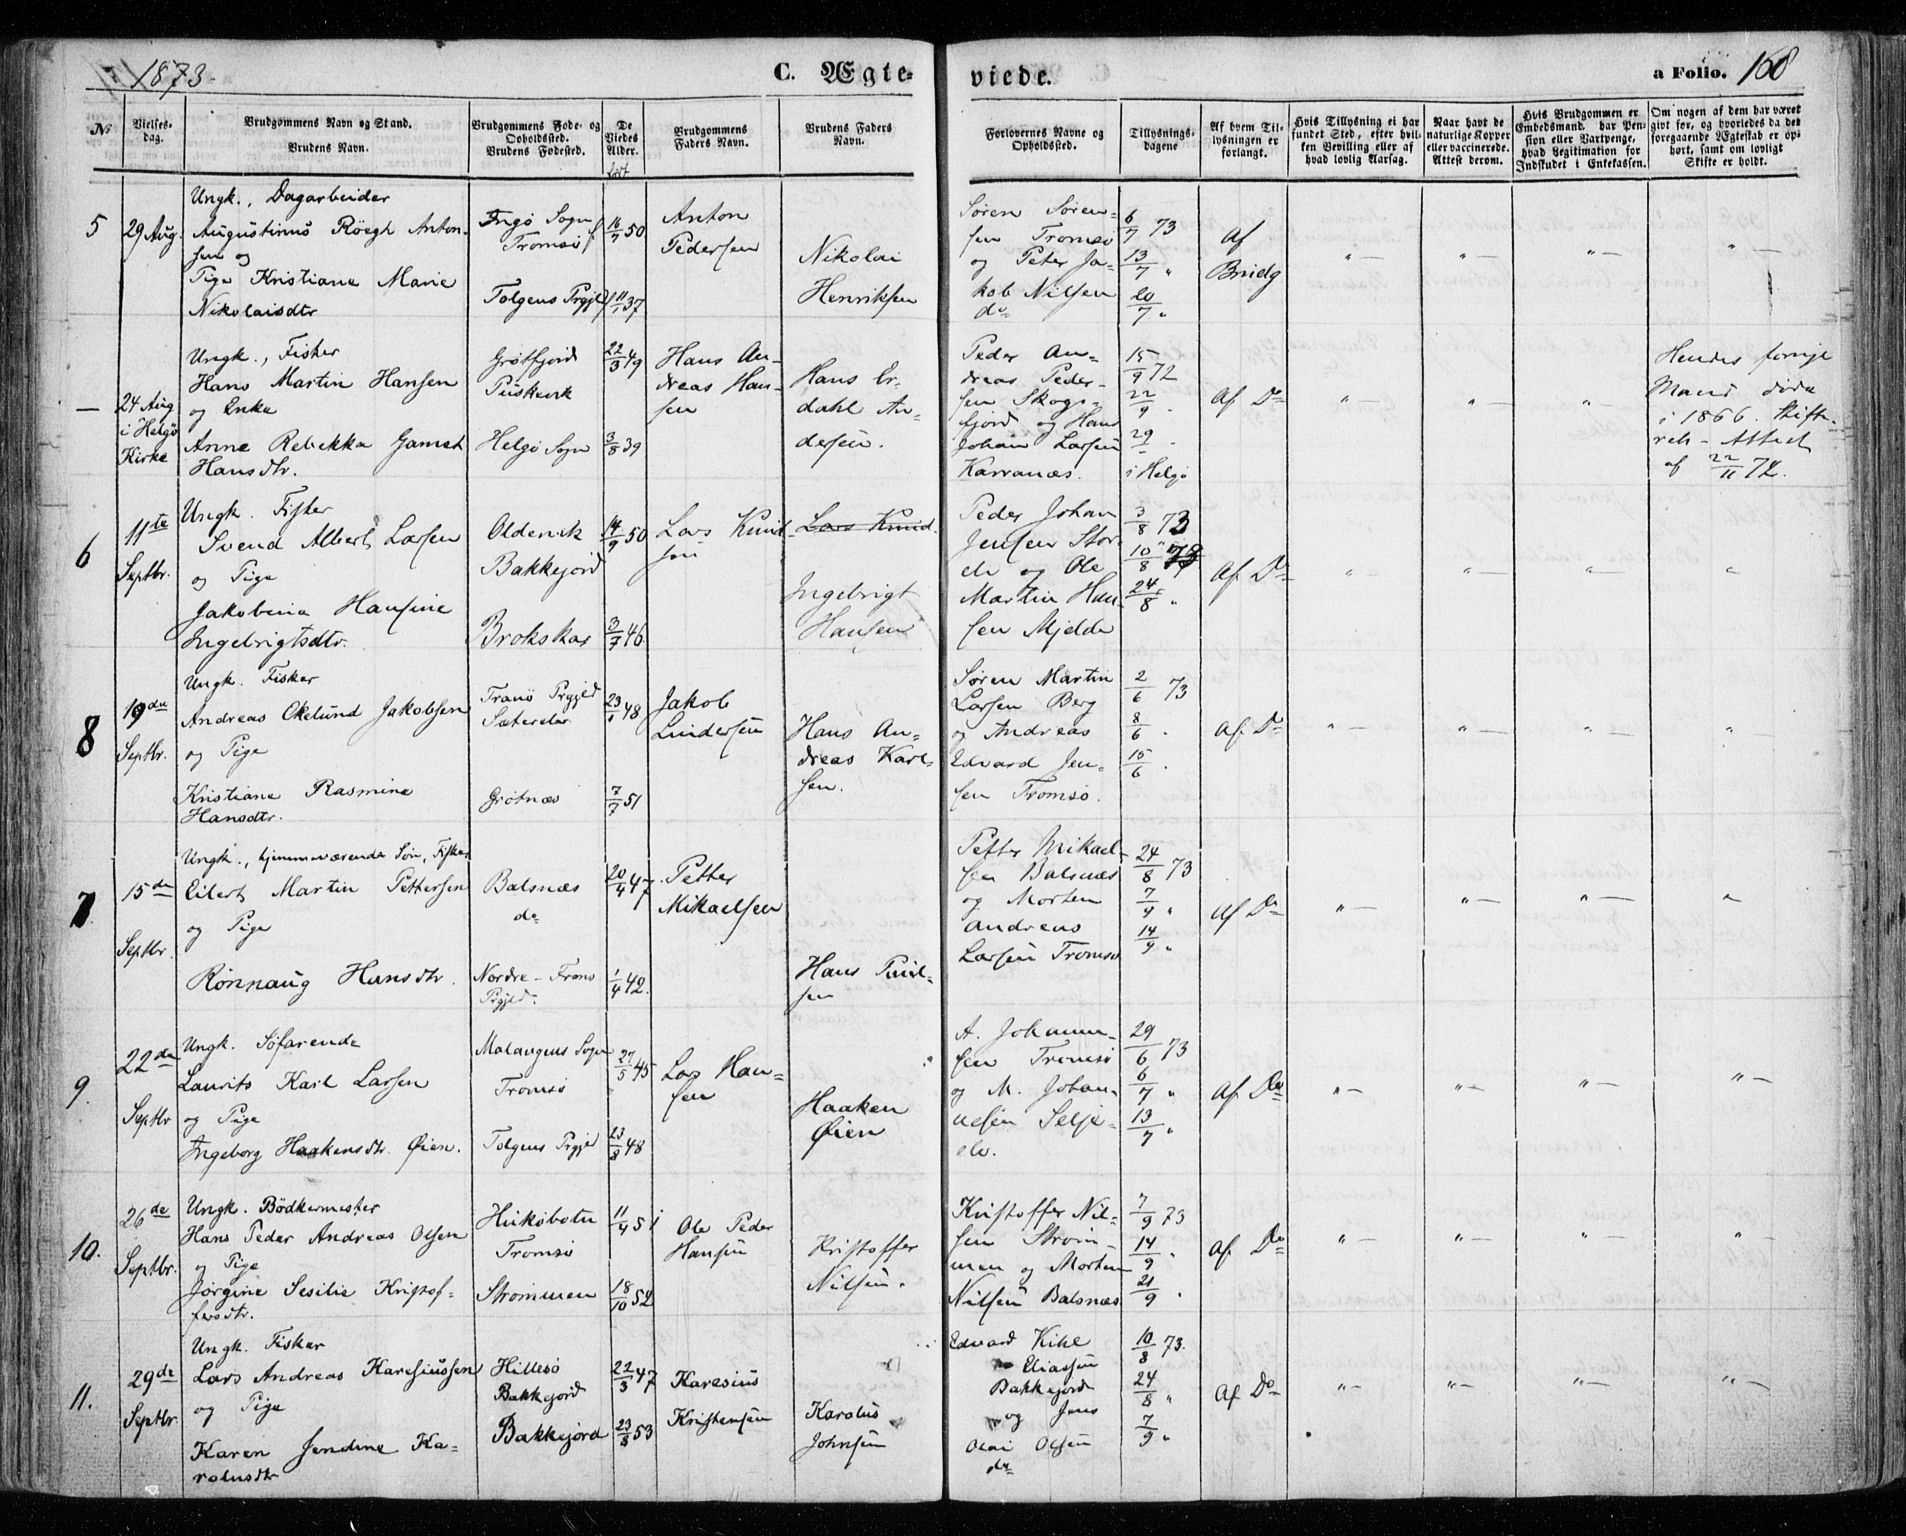 1873.
C. Ægte-
viede.
a Folio. 168
No
Vielses-
dag.
Brudgommens Navn og Stand.
Brudens Navn.
Brudgommens Føde- og
Opholdssted.
Brudens Fødested.
De
Viedes
Alder.
født
Brudgommens
Faders Navn.
Brudens Faders
Navn.
Forlovernes Navne og
Opholdssted.
Tillysnings-
dagene
Af hvem Til-
lysningen er
forlangt.
Hvis Tillysning ei har
fundet Sted, efter hvil-
ken Bevilling eller af
hvad lovlig Aarsag.
Naar havt de
naturlige Kopper
eller vaccinerede.
Attest derom.
Hvis Brudgommen er
Embedsmand, har Pen-
sion eller Vartpenge,
hvad Legitimation for
Indskudet i Enkekassen.
Om nogen af dem har været
givt før, og hvorledes da det
foregaaende Ægteskab er op-
hørt, samt om lovligt
Skifte er holdt.
5
29 Aug.
Ungk., Dagarbeider
Augustinus Röegh Anton-
sen og
Pige Kristiane Marie
Nikolaisdtr
Ingö Sogn
Tromsö
Tolgens Prgjld
16/7 50
11/1 37
Anton
Pedersen
Nikolai
Henriksen
Sören Sören-
sen Tromsö
og Peter Ja-
kob Nilsen
do
6/7 73
13/7 "
20/7 "
Af
Brudg
" —
" —
" —
" —
—
24 Aug
i Helgö
Kirke
Ungk., Fisker
Hans Martin Hansen
og Enke
Anne Rebekka Gamst
Hansdtr.
Grötfjord
Buskevik
Helgö Sogn
22/3 49
3/8 39
Hans An-
dreas Han-
sen
Hans Ar-
dahl An-
dersen.
Peder An-
dreas Peder-
sen Skogs-
fjord og Hans
Johan Larsen
Karvanæs.
15/9 72
22/9 .
29/ .
i Helgö
Af Do
" —
" —
"
Hendes forrige
Mand döde
i 1866. Skifte-
rets-Attest
af 22/11 72.
6
11te
Septbr.
Ungk. Fisker
Svend Albert Larsen
og Pige
Jakobine Hansine
Ingebrigtsdtr.
Oldervik
Bakkejord
Brokskar
14/9 50
3/7 46
Lars Knud-
sen
Lars Knud-
Ingebrigt
Hansen
Peder Johan
Jensen Stor-
elv og Ole
Martin Han-
sen Mjelde
3/8 73
10/8 " 73
24/8 "
Af Do
" —
" —
" —
"
8
19de
Septbr.
Ungk. Fisker
Andreas Okelund Jakobsen
og Pige
Kristiane Rasmine
Hansdtr.
Tranö Prgjld
Sæterelar
Grötnæs
23/1 48
7/7 51
Jakob
Lindersen
Hans An-
dreas Karl-
sen.
Sören Martin
Larsen Berg
og Andreas
Edvard Jen-
sen Tromsö.
2/6 73
8/6 .
15/6 .
Af Do
" —
" —
" —
"
7.
15de
Septbr.
Ungk., hjemmeværende Sön, Fisker
Eilert Martin Pettersen
og Pige
Rönnaug Hansdtr.
Balsnæs
do
Nordre-Frons
Prgjld.
20/4 47
1/4 42.
Petter
Mikaelsen
Hans Paul-
sen
Petter Mikael-
sen Balsnæs
og Morten
Andreas
Larsen Tromsö
24/8 73
7/9 "
14/9 "
Af Do
" —
" —
" —
" —
9.
22de
Septbr
Ungk. Söfarende
Laurits Karl Larsen
og Pige
Ingeborg Haakensdtr. Øien.
Malangens Sogn
Tromsö
Tolgens Prgjld
27/5 45
23/8 48
Lars Han-
sen
Haaken
Øien
A. Johann-
sen Tromsö
og M. Johan-
nesen Selje-
elv.
29/6 73
6/7 "
13/7 "
Af Do
" —
" —
" —
" —
10.
26de
Septbr.
Ungk. Bödkermester
Hans Peder Andreas Olsen
og Pige
Jörgine Sesilie Kristof-
fersdtr.
Huköbotn
Tromsö
Strömmen
11/4 51
18/10 52
Ole Peder
Hansen
Kristoffer
Nilsen.
Kristoffer Nil-
sen Ström-
men og Morten
Nilsen Balsnæs
7/9 73
14/9 "
21/9 .
Af Do
" —
" —
" —
" —
11.
29de
Septbr.
Ungk. Fisker
Lars Andreas Karesiussen
og Pige
Karen Jendine Ka-
rolusdtr
Hillesö
Bakkejord
Bakkejord
22/3 47
23/8 53
Karesius
Kristensen
Karolus
Johnsen
Edvard Kihl
Eliassen
Bakkejord
og Jens
Olai Olsen
do
10/8 73.
24/8 "
7/9 "
Af Do
" —
" —
" —
" —